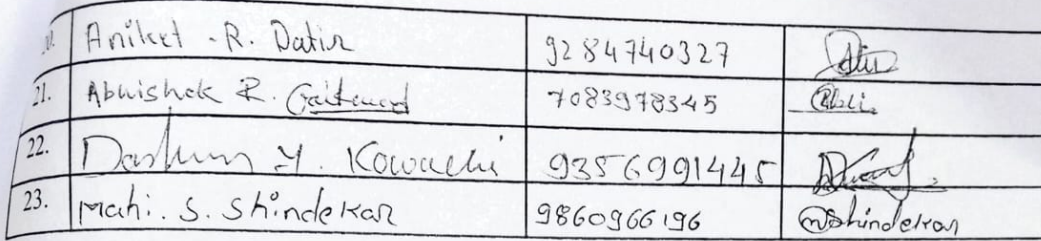 20. Aniket .R. Datir 9284740327
21. Abhishek R. Gaikwad 7083978345
22. Y. Kowachi 9356991445
23. Mahi. S. Shindekar 9860966196 mshindekar